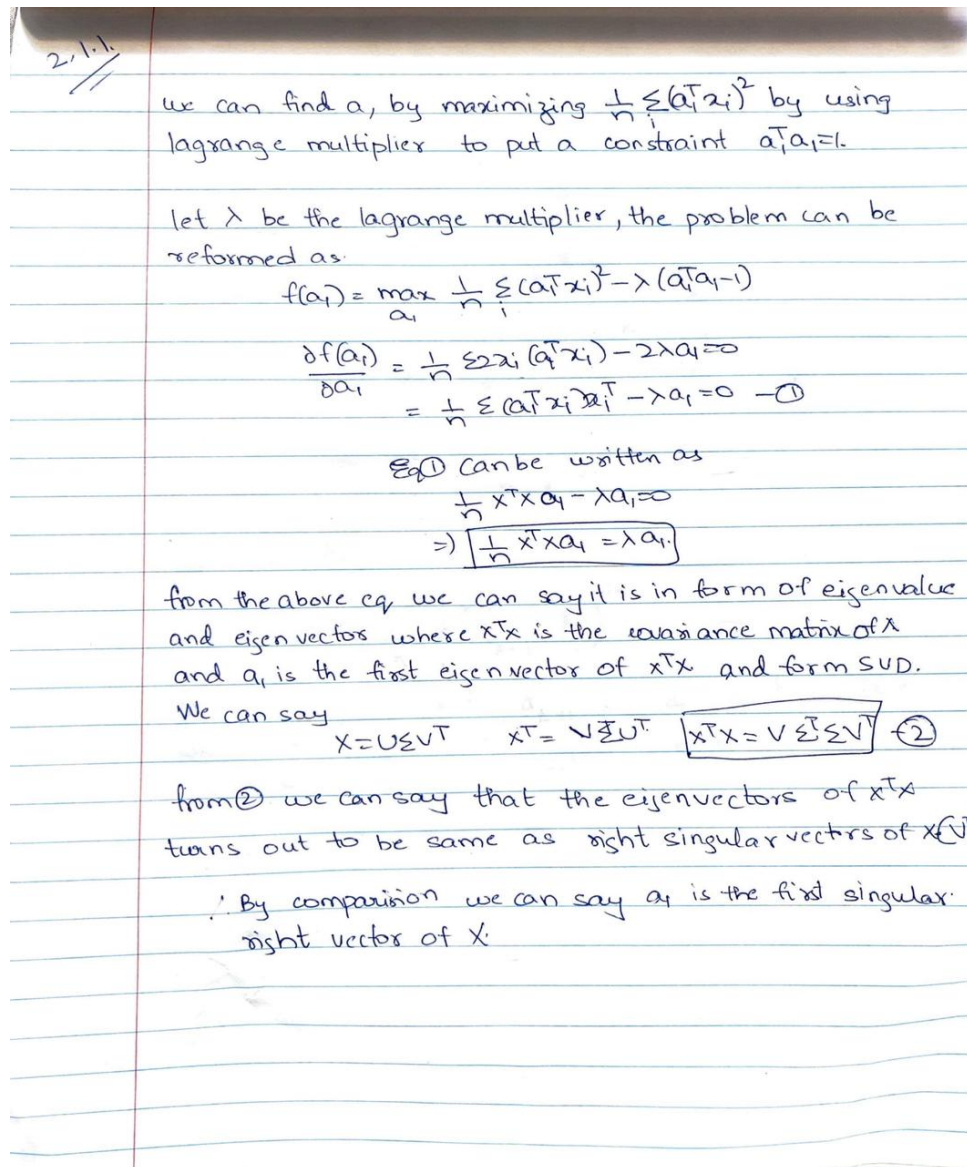 2.1.1.
we can find a₁ by maximizing 1/n Σᵢ(a₁ᵀxᵢ)² by using
lagrange multiplier to put a constraint a₁ᵀa₁=1.
let λ be the lagrange multiplier, the problem can be
reformed as.
f(a₁) = max_{a₁} 1/n Σᵢ(a₁ᵀxᵢ)² - λ(a₁ᵀa₁-1)
∂f(a₁)/∂a₁ = 1/n Σ2xᵢ(a₁ᵀxᵢ) - 2λa₁=0
= 1/n Σ(a₁ᵀxᵢ)xᵢᵀ - λa₁=0 -①
Eq① can be written as
1/n XᵀXa₁ - λa₁=0
=) 1/n XᵀXa₁ = λa₁.
from the above eq we can say it is in form of eigenvalue
and eigen vector where XᵀX is the covariance matrix of X
and a₁ is the first eigen vector of XᵀX and form SVD.
We can say
X=UΣVᵀ Xᵀ= VΣᵀUᵀ XᵀX = VΣᵀΣVᵀ -②
from② we can say that the eigenvectors of XᵀX
turns out to be same as right singular vectors of X(V
∴ By comparision we can say a₁ is the first singular
right vector of X.